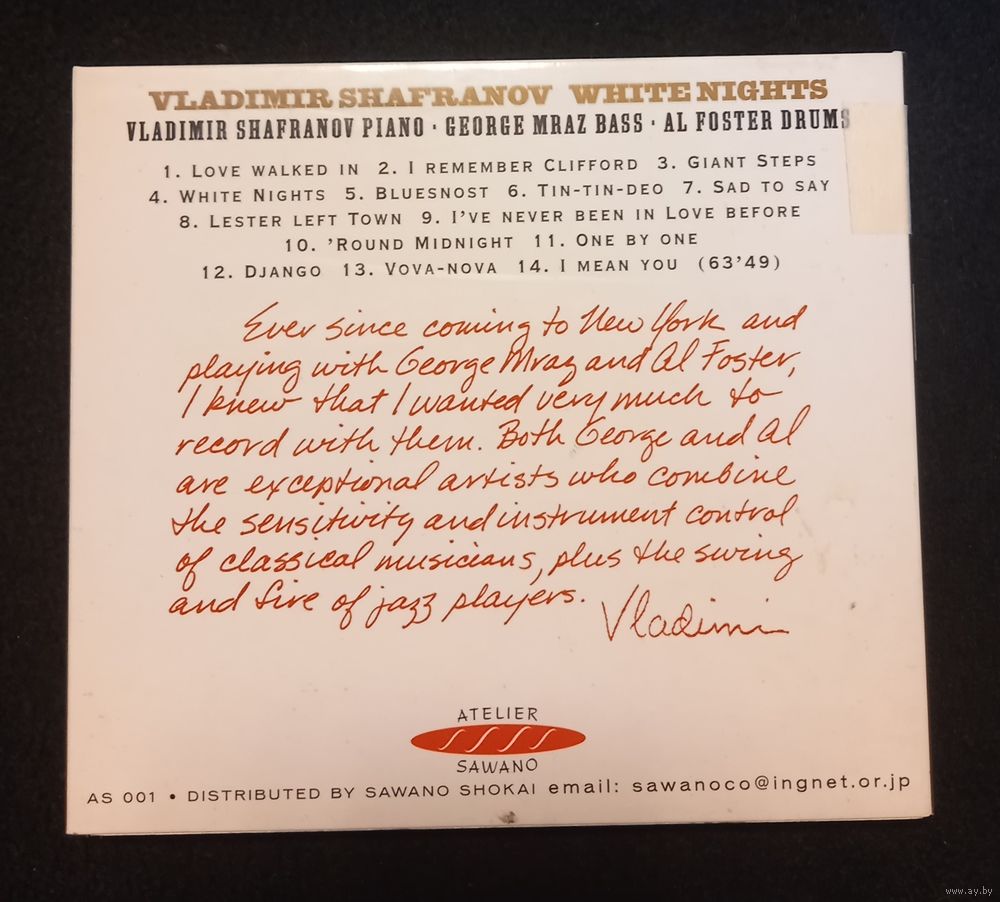 VLADIMIR SHAFRANOV WHITE NIGHTS
VLADIMIR SHAFRANOV PIANO · GEORGE MRAZ BASS · AL FOSTER DRUMS
1. LOVE WALKED IN 2. I REMEMBER CLIFFORD 3. GIANT STEPS
4. WHITE NIGHTS 5. BLUESNOST 6. TIN-TIN-DEO 7. SAD TO SAY
8. LESTER LEFT TOWN 9. I'VE NEVER BEEN IN LOVE BEFORE
10. 'ROUND MIDNIGHT 11. ONE BY ONE
12. DJANGO 13. VOVA-NOVA 14. I MEAN YOU (63'49)
Ever since coming to New York and
playing with George Mraz and Al Foster,
I knew that I wanted very much to
record with them. Both George and Al
are exceptional artists who combine
the sensitivity and instrument control
of classical musicians, plus the swing
and fire of jazz players.
Vladimir
ATELIER
SAWANO
AS 001 • DISTRIBUTED BY SAWANO SHOKAI email: sawanoco@ingnet.or.jp
www.ay.by